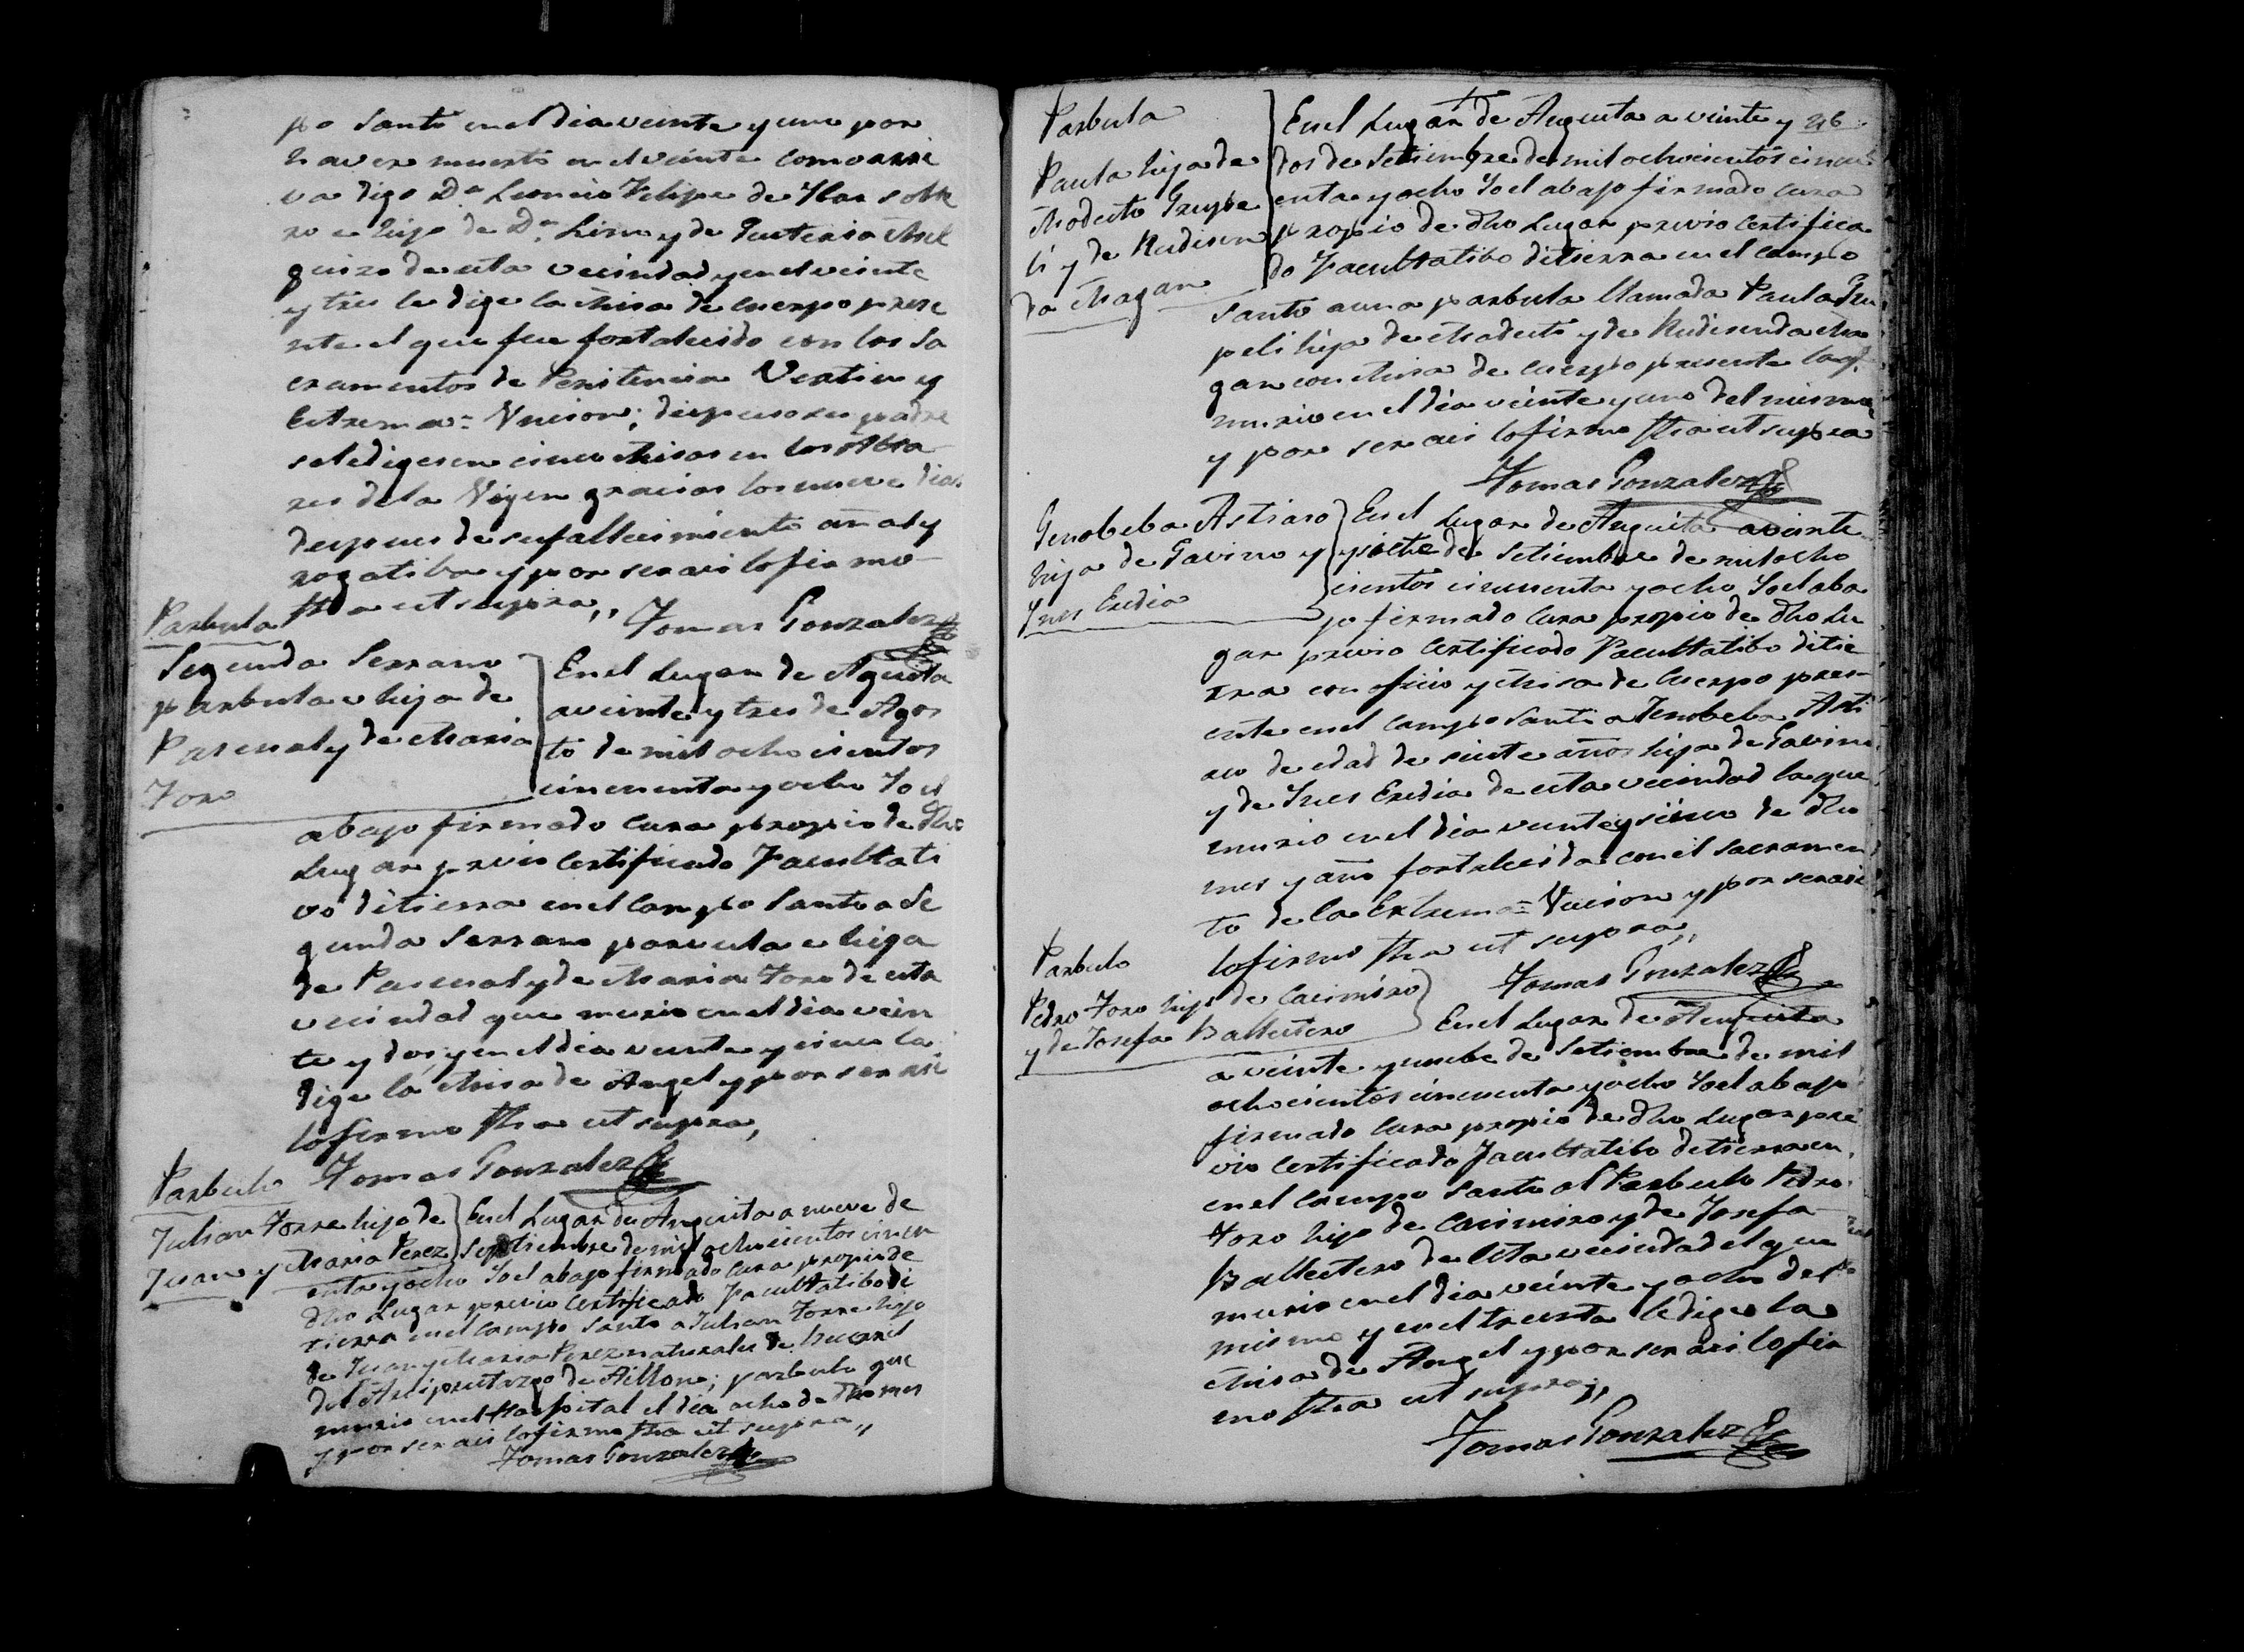 po Santo en el Dia veinte y uno por
haver muerto en el veinte como arri
va digo Dn Leoncio Felipe de Ybar solte
ro e hijo de Dn Lino y de Quiteria
de esta vecindad y en el veinte
y tres le dige la Misa de cuerpo prese
nte el que fue fortalecido con los Sa
cramentos de Penitencia y
Extrema= Uncion; dispuso su padre
se le digesen cinco Misas en los Alta
res de la Virgen gracias los nueve dias
despues de su fallecimiento añal y
rogatiba y por ser asi lo firmo
fha ut supra,, Tomas Gonzalez
Parbula
Segunda Serrano
parbula e hija de
Pascual y de Maria
Toro
En el Lugar de Aguita
a veinte y tres de Agos
to de mil ocho cientos
cincuenta y ocho Yo el
abajo firmado Cura propio de dho
Lugar previo Certificado Facultati
vo di tierra en el Campo Santo a Se
gunda Serrano parvula e hija
de Pascual y de Maria Toro de esta
vecindad que murio en el dia vein
te y dos, y en el dia veinte y cinco la
dige la Misa de Angel y por ser asi
lo firmo fha ut supra,
Tomas Gonzalez
Parbulo
Julian Torre hijo de
Juan y Maria Perez
En el Lugar de Anguita a nueve de
Septiembre de mil ochocientos cincu
enta y ocho Yo el abajo firmado Cura propio de
dho Lugar previo Certificado Facultatibo di
tierra en el Campo Santo a Julian Torre hijo
de Juan y Maria Perez naturales de
del Arciprestazgo de Aillon; parbulo que
murio en el Hospital el dia ocho de dho mes
y por ser asi lo firmo fha ut supra,,
Tomas Gonzalez
46
Parbula
Paula hija de
Modesto Grupe
li y de Rudisen
da Magan
En el Lugar de Anguita a veinte y
dos de Setiembre de mil ochocientos cincu
enta y ocho Yo el abajo firmado Cura
propio de dho Lugar previo Certifica
do Facultatibo di tierra en el campo
Santo a una parbula llamada Paula Gru
peli hija de Modesto y de Rudisenda Ma
gan con Misa de cuerpo presente la q.
murio en el dia veinte y uno del mismo
y por ser asi lo firmo fha ut supra
Tomas Gonzalez
Genobeba Astiaso
hija de Gavino y
Ynes Eredia
En el Lugar de Anguita a veinte
y siete de Setiembre de mil ocho
cientos cincuenta y ocho Yo el aba
jo firmado Cura propio de dho Lu
gar previo Certificado Facultatibo di tie
rra con oficio y Misa de Cuerpo pres-
ente en el Campo Santo a Jenobeba Asti
aso de edad de siete años hija de Gavino
y de Ynes Eredia de esta vecindad la que
murio en el dia veinte y sinco de dho
mes y año fortalecida con el sacramen
to de la Extrema= Uncion y por ser asi
lo firmo fha ut supra,,
Tomas Gonzalez
Parbulo
Pedro Toro hijo de Casimiro
y de Josefa Ballestero
En el Lugar de Anguita
a veinte y nuebe de Setiembre de mil
ochocientos cincuenta y ocho Yo el abajo
firmado Cura propio de dho Lugar pre
vio Certificado Facultatibo di tierra en
en el Campo Santo al Parbulo Pedro
Toro hijo de Casimiro y de Josefa
Ballestero de esta vecindad el que
murio en el dia veinte y ocho del
mismo y en el treinta le dige la
Misa de Angel y por ser asi lo fir
mo fha ut supra,,
Tomas Gonzalez